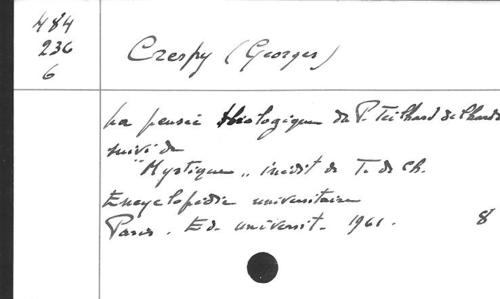 484
236
6
Crespy (Georges)
La pensée théologique du P. Teilhard de Chardin
suivi de
"Mystique" inédit de T. de Ch.
Encyclopédie universitaire
Paris. Ed. universit. 1961. 8°